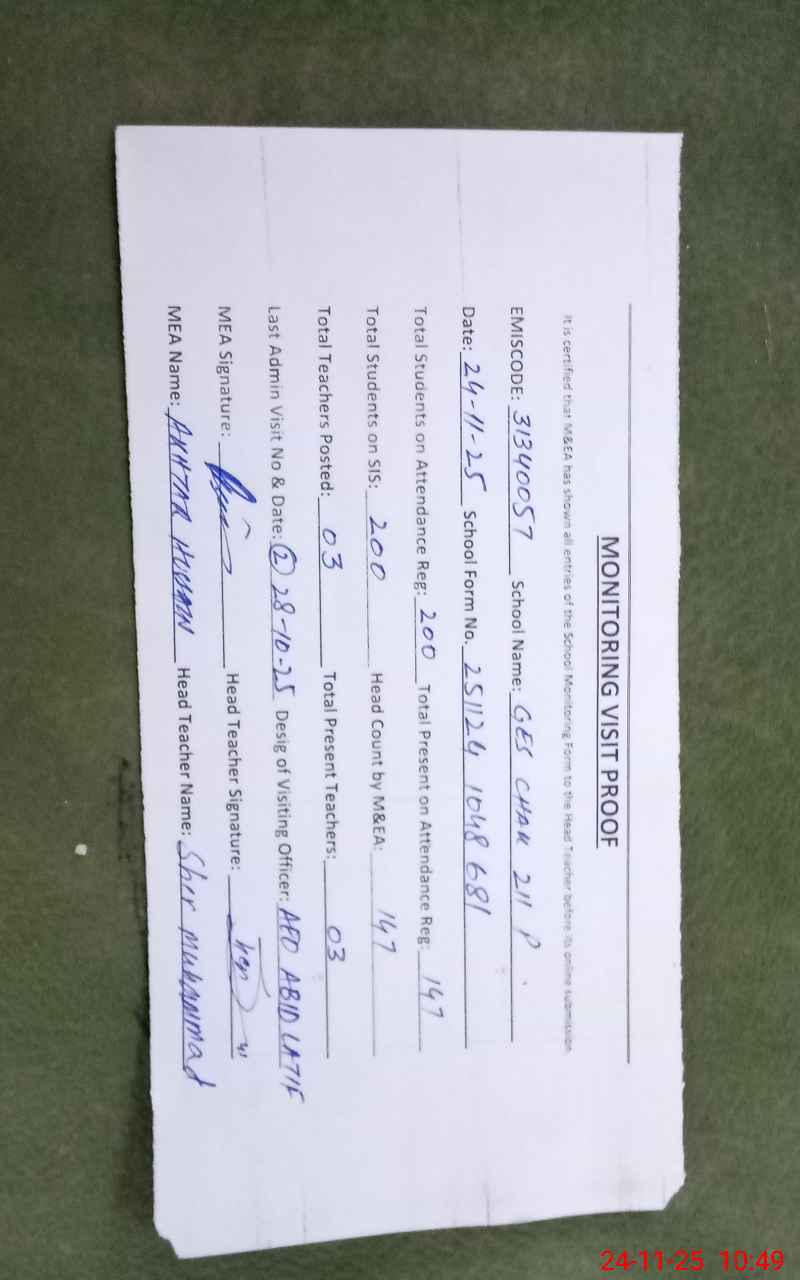 MONITORING VISIT PROOF
It is certified that M&EA has shown all entries of the School Monitoring Form to the Head Teacher before its online submission
EMISCODE: 31340057 School Name: GES CHAK 211 P
Date: 24-11-25 School Form No. 251124 1048 681
Total Students on Attendance Reg: 200 Total Present on Attendance Reg: 147
Total Students on SIS: 200 Head Count by M&EA: 147
Total Teachers Posted: 03 Total Present Teachers: 03
Last Admin Visit No & Date: (2) 28-10-25 Desig of Visiting Officer: AEO ABID LATIF
MEA Signature: Head Teacher Signature:
MEA Name: AKHTAR HUSSAIN Head Teacher Name: Sher Muhammad
24-11-25 10:49